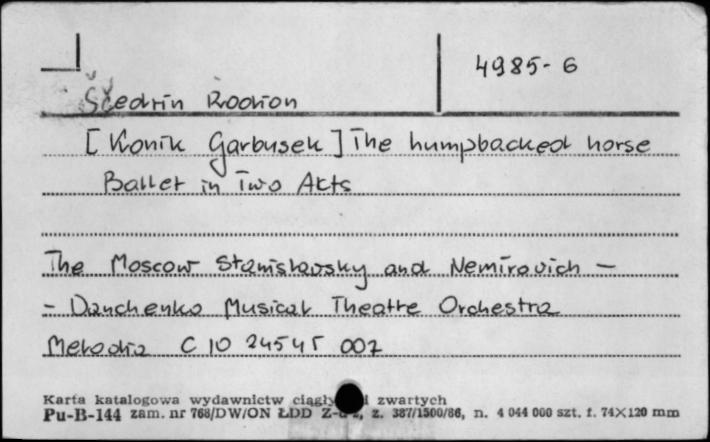 4985-6
Ščedrin Rodion
[Konik Garbusek] The humpbacked horse
Ballet in Two Akts
The Moscow Stanislavsky and Nemirovich -
- Danchenko Musical Theatre Orchestra
Melodia C 10 24545 007
Karta katalogowa wydawnictw zwartych
Pu-B-144 zam. nr 768/DW/ON ŁDD z. 387/1500/86, n. 4 044 000 szt. f. 74×120 mm